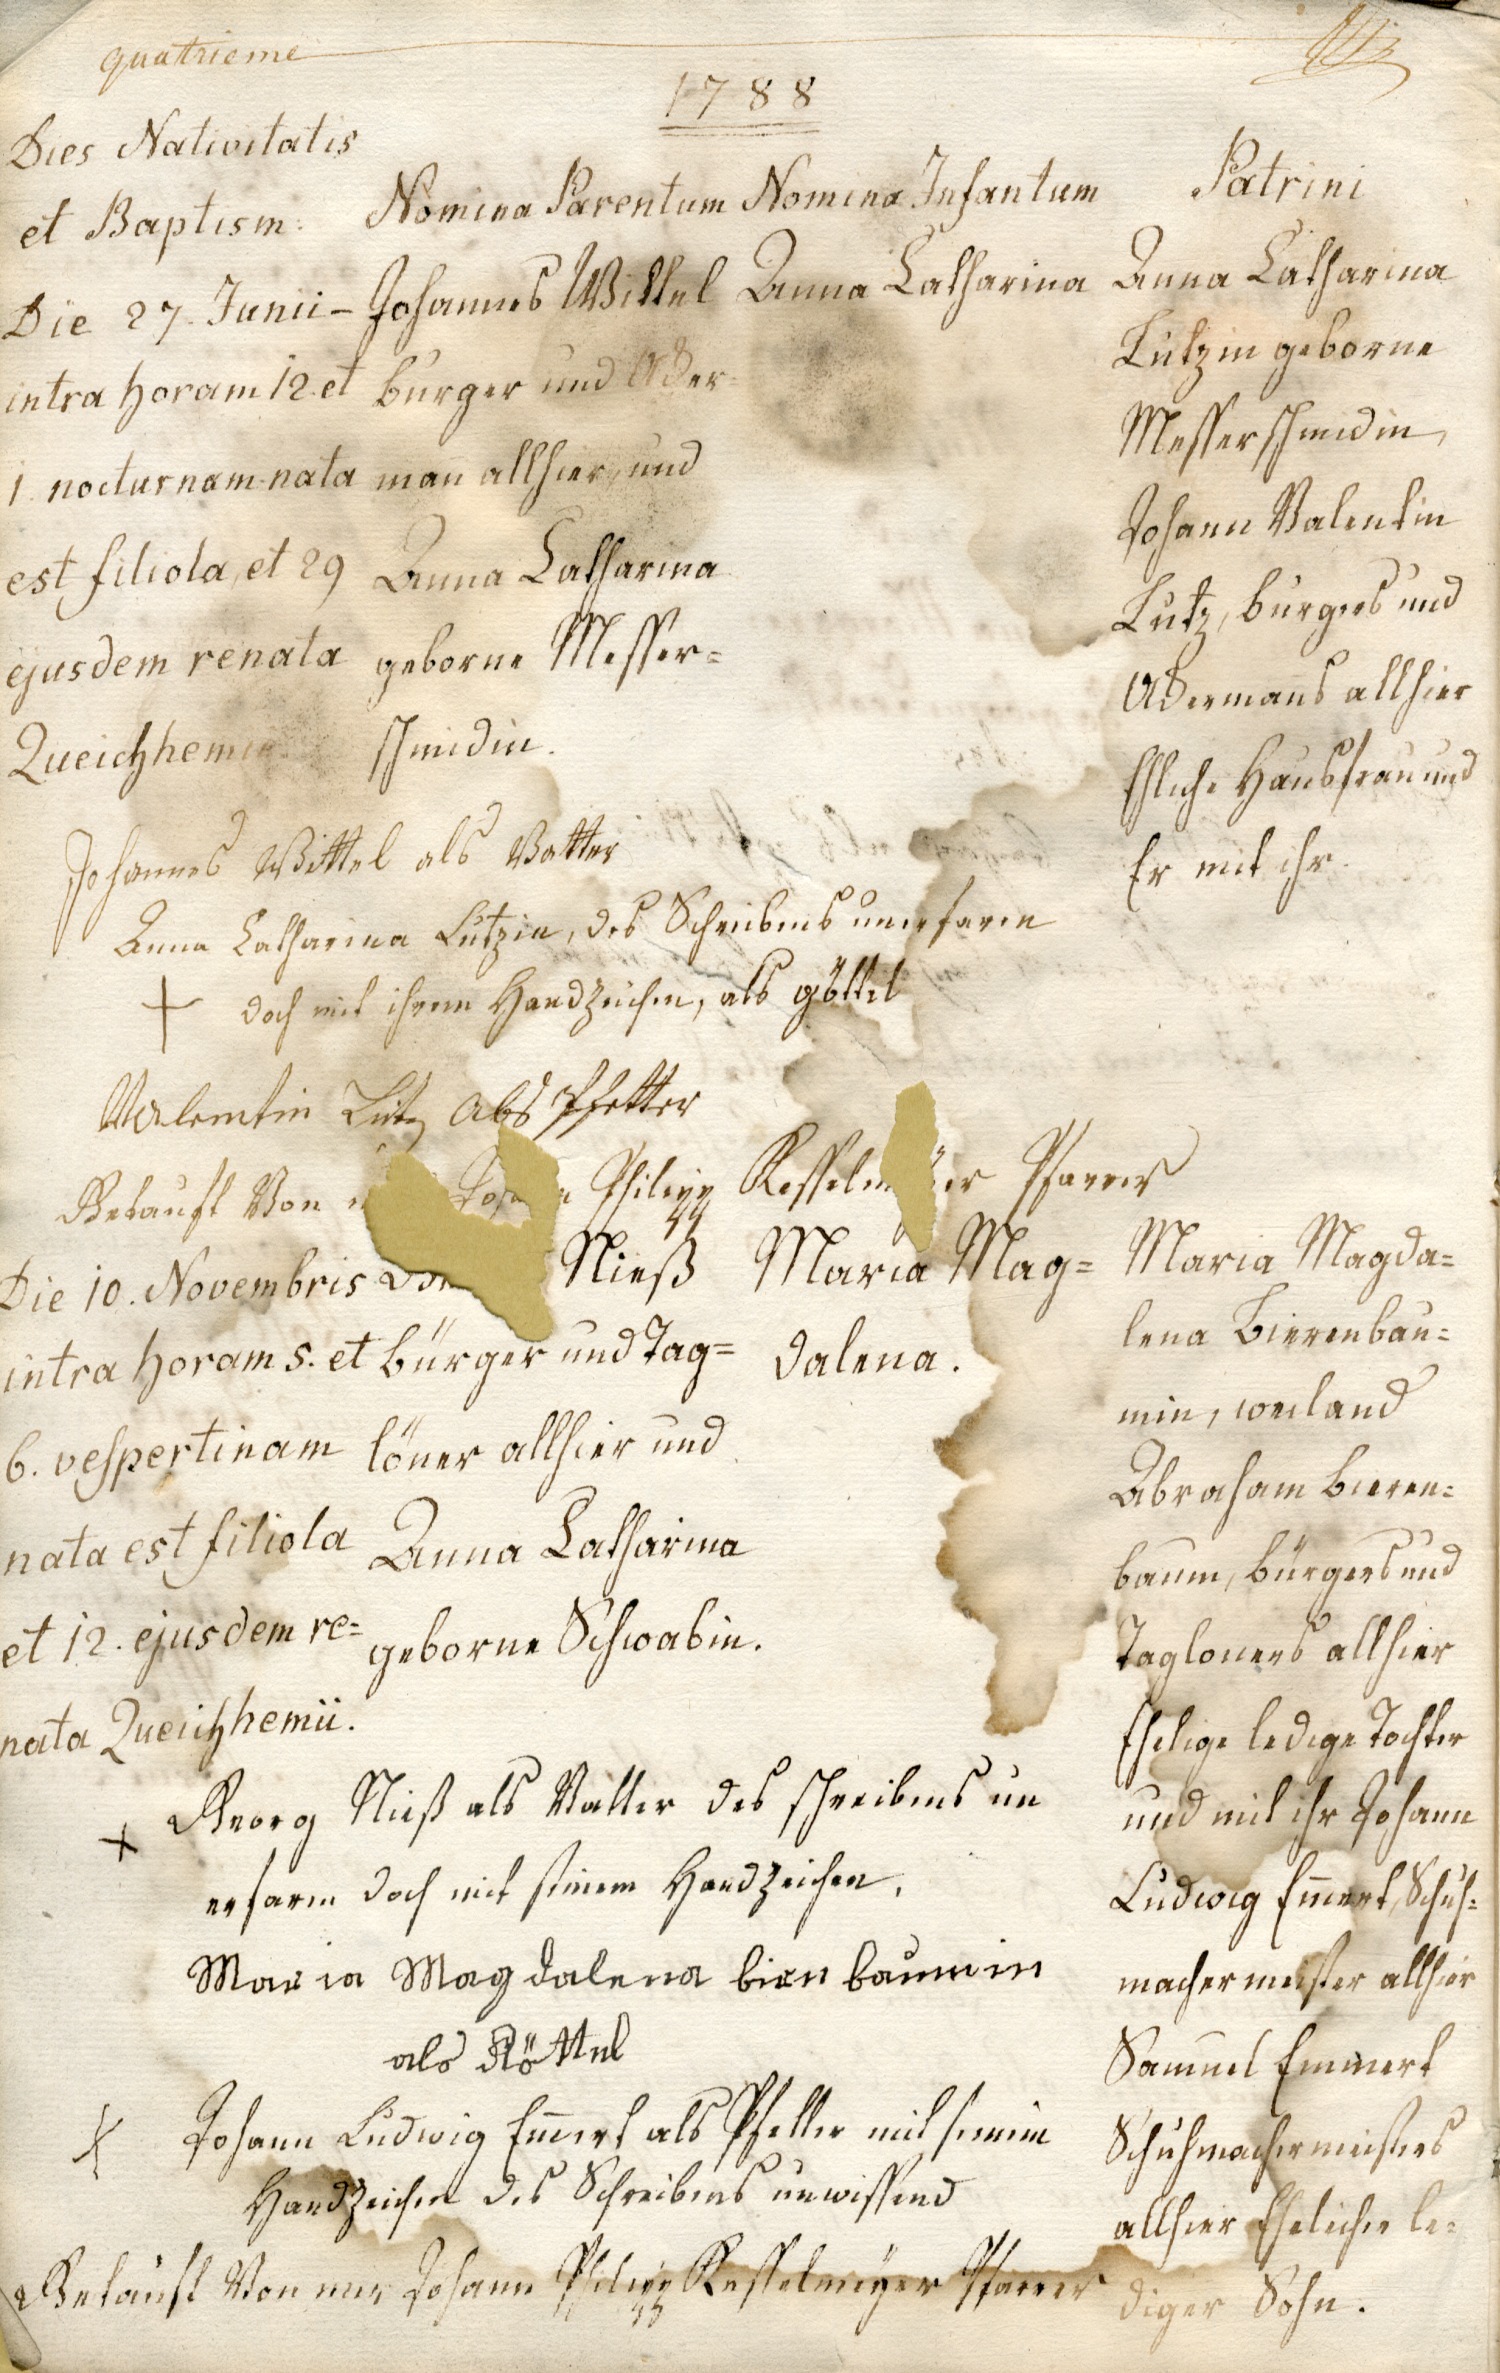 quatrieme
1788
Dies Nativitatis
et Baptism:
Nomina Parentum
Nomina Infantum
Patrini
Die 27. Junii –
intra horam 12. et
1. nocturnam nata
est filiola, et 29
ejusdem renata
Queichhemii
Johannes Wittel
burger und Acker-
man allhier, und
Anna Catharina
geborne Messer=
schmidin.
Anna Catharina
Anna Catharina
Lutzin geborne
Messerschmidin,
Johann Valentin
Lutz, burgers und
Ackermans allhier
Ehliche Hausfrau und
Er mit ihr.
Johannes Wittel als Vatter
Anna Catharina Lutzin, des Schreibens unerfaren
+ doch mit ihrem Handzeichen, als göttel
Valentin Lutz als Pfetter
Getauft Von Johann Philipp Kesselmeÿer Pfarrer
Die 10. Novembris
intra horam 5. et
6. vespertinam
nata est filiola
et 12. ejusdem re=
nata Queichhemii.
Nieß
bürger und Tag=
löner allhier und
Anna Catharina
geborne Schwabin.
Maria Mag=
dalena.
Maria Magda=
lena Bierenbau=
min, weiland
Abraham bieren=
baum, bürgers und
Tagloners allhier
Ehelige ledige Tochter
und mit ihr Johann
Ludwig Em̅ert, Schuh=
macher meister allhier
Samuel Emmert
Schuhmachermeisters
allhier Ehelicher le=
diger Sohn.
+ Georg Nieß als Vatter des schreibens un
erfaren doch mit seinem Handzeichen.
Maria Magdalena bierenbaumin
als Göttel
+ Johann Ludwig Em̅ert als Pfetter mit seinem
Handzeichen des Schreibens unwissend
Getauft Von mir Johann Philipp Kesselmeÿer Pfarrer